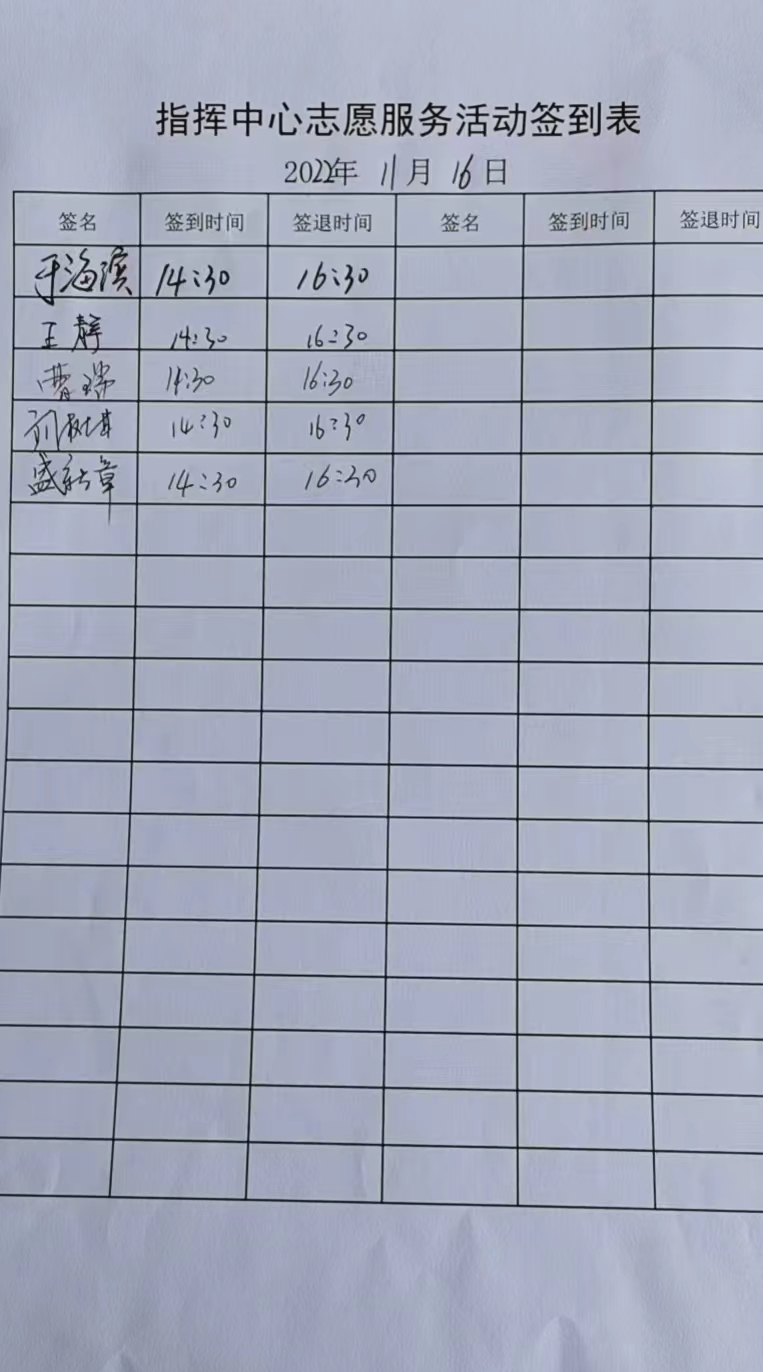 指挥中心志愿服务活动签到表
2022年 11月 16日
签名 签到时间 签退时间 签名 签到时间 签退时间
于海滨 14:30 16:30
王静 14:30 16:30
曹瑞 14:30 16:30
刘树基 14:30 16:30
盛新章 14:30 16:30